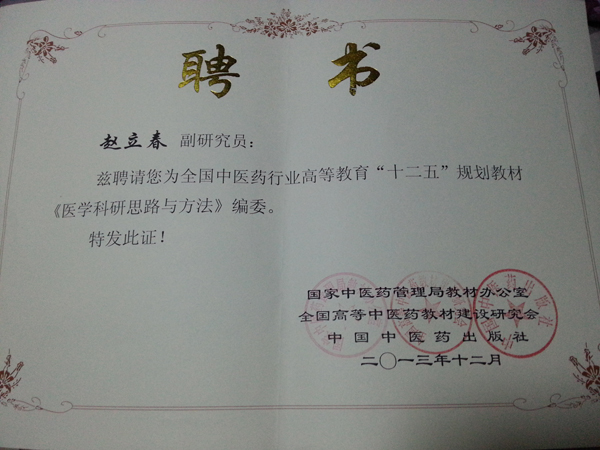 聘 书
赵立春 副研究员：
兹聘请您为全国中医药行业高等教育“十二五”规划教材
《医学科研思路与方法》编委。
特发此证！
国家中医药管理局教材办公室
全国高等中医药教材建设研究会
中国中医药出版社
二〇一三年十二月